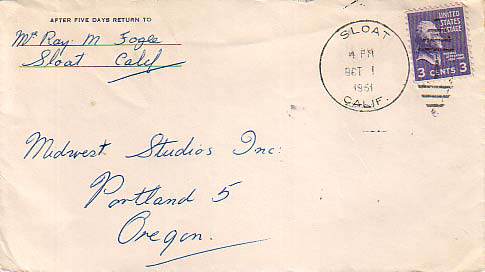 AFTER FIVE DAYS RETURN TO
Mr Ray M Fogle
Sloat Calif
SLOAT
4 PM
OCT 1
1951
CALIF.
UNITED
STATES
POSTAGE
3 CENTS 3
Midwest Studios Inc:
Portland 5
Oregon.